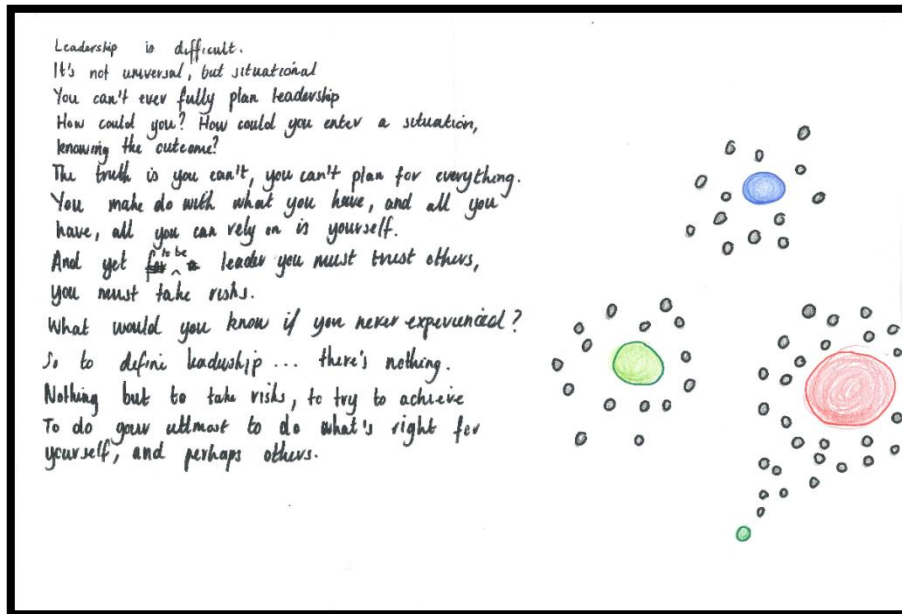 Leadership is difficult.
It's not universal, but situational
You can't ever fully plan leadership
How could you? How could you enter a situation,
knowing the outcome?
The truth is you can't, you can't plan for everything.
You make do with what you have, and all you
have, all you can rely on is yourself.
And yet to be leader you must trust others,
you must take risks.
What would you know if you never experienced?
So to define leadership ... there's nothing.
Nothing but to take risks, to try to achieve
To do your uttmost to do what's right for
yourself, and perhaps others.